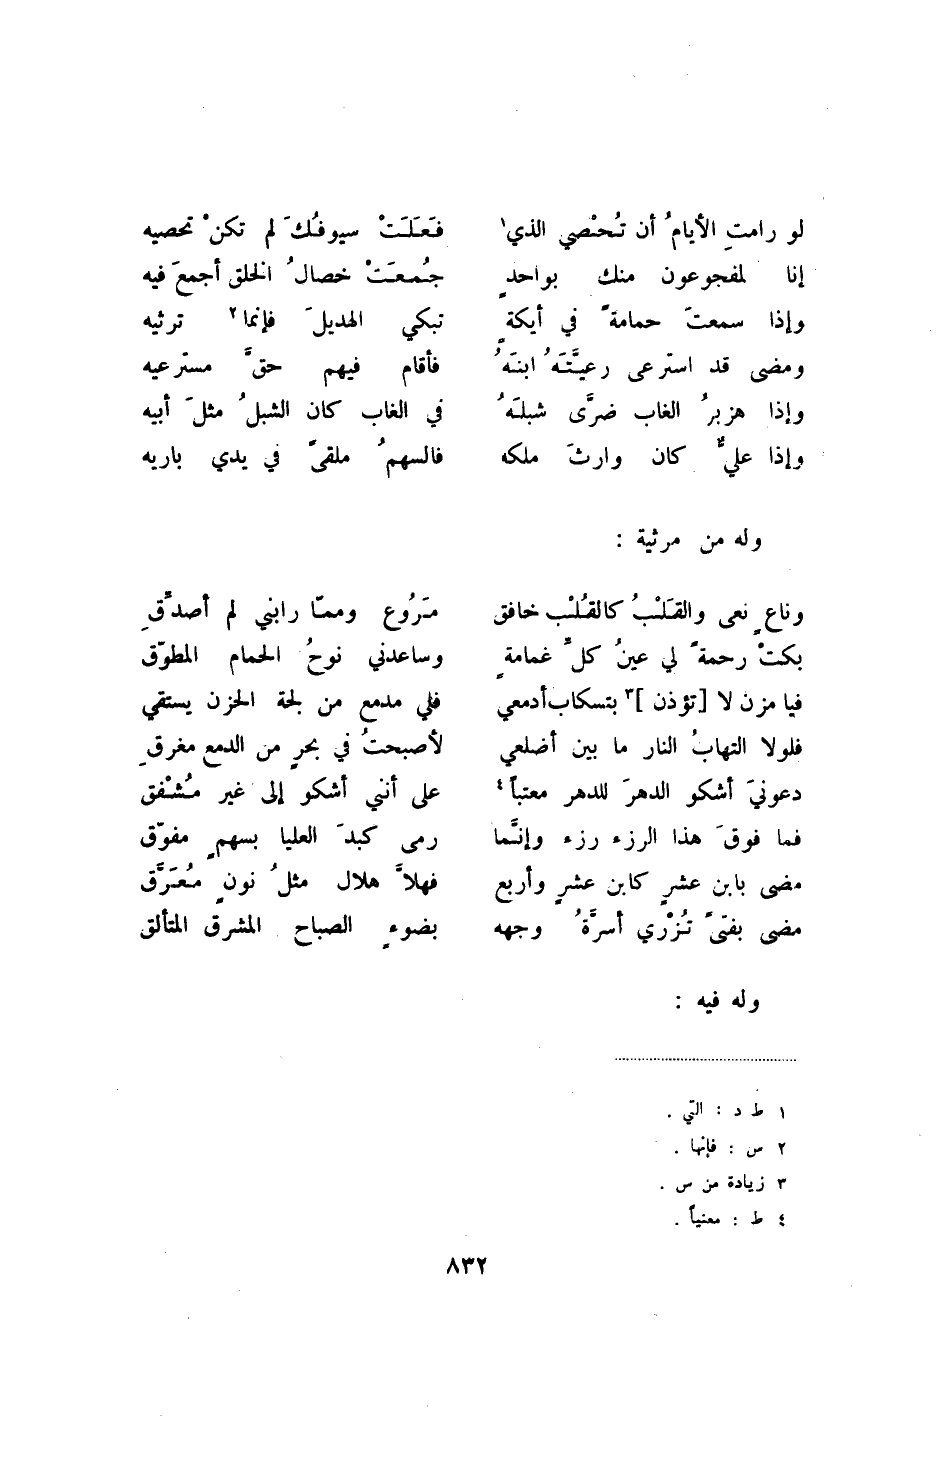 لو رامتِ الأيامُ أن تُحْصي الذي١ فَعَلَتْ سيوفُكَ لم تكنْ تحصيه
إنا لمفجوعون منك بواحدٍ جُمعَتْ خصالُ الخلق أجمعَ فيه
وإذا سمعتَ حمامةً في أيكةٍ تبكي الهديلَ فإنما٢ ترثيه
ومضى قد استرعى رعيَّتَهُ ابنَهُ فأقام فيهم حقَّ مسترعيه
وإذا هزبرُ الغاب ضرَّى شبلَهُ في الغاب كان الشبلُ مثلَ أبيه
وإذا عليٌّ كان وارثَ ملكه فالسهمُ ملقىً في يدي باريه
وله من مرثية :
وناعٍ نعى والقَلْبُ كالقُلْب خافق مَرُوع وممّا رابني لم أصدّقِ
بكتْ رحمةً لي عينُ كلِّ غمامةٍ وساعدني نوحُ الحمام المطوّق
فيا مزن لا [تؤذن]٣ بتسكاب أدمعي فلي مدمع من لجة الحزن يستقي
فلولا التهابُ النار ما بين أضلعي لأصبحتُ في بحرٍ من الدمع مغرقِ
دعونيَ أشكو الدهرَ للدهر معتباً٤ على أنني أشكو إلى غير مُشْفق
فما فوقَ هذا الرزء رزء وإنَّما رمى كبدَ العليا بسهمٍ مفوّق
مضى بابن عشرٍ كابن عشرٍ وأربع فهلاَّ هلال مثلُ نونٍ مُعَرَّق
مضى بفتىً تُزْري أسرَّةُ وجهه بضوءِ الصباح المشرق المتألق
وله فيه :
١ ط د : التي .
٢ س : فإنها .
٣ زيادة من س .
٤ ط : معنياً .
٨٣٢